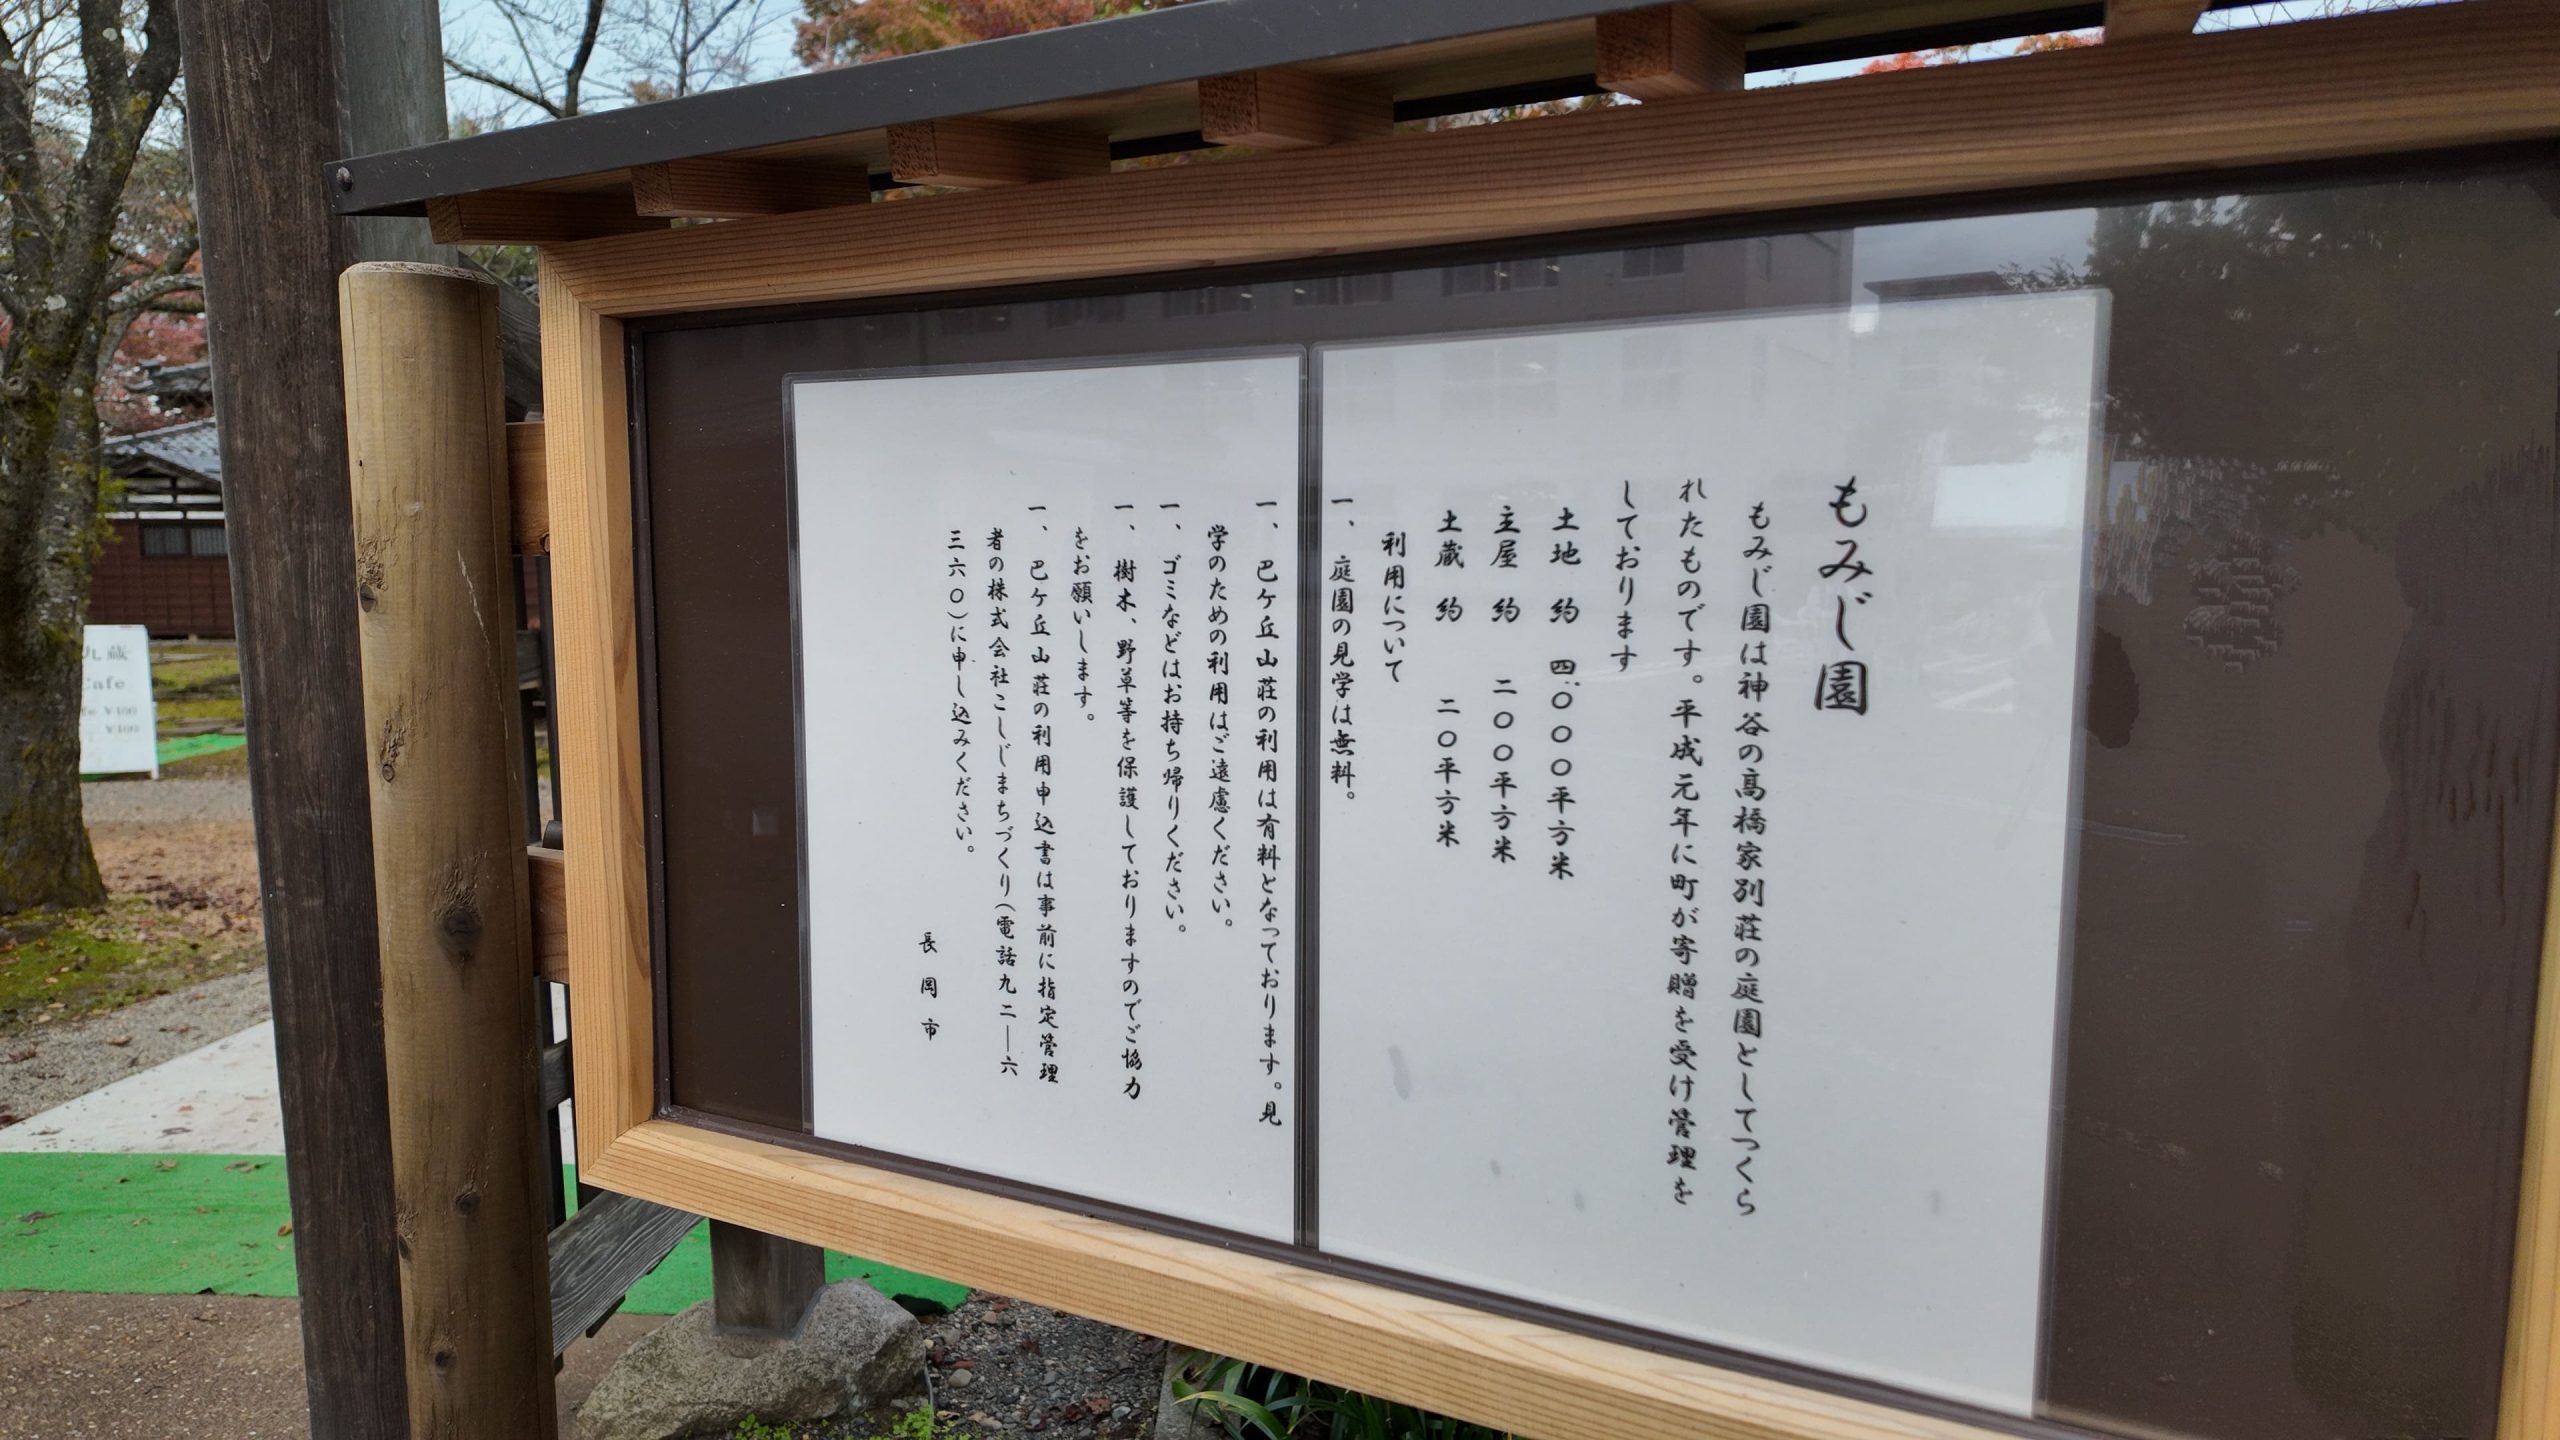 もみじ園
もみじ園は神谷の高橋家別荘の庭園としてつくら
れたものです。平成元年に町が寄贈を受け管理を
しております
土地 約 四、〇〇〇平方米
主屋 約 二〇〇平方米
土蔵 約 二〇平方米
利用について
一、庭園の見学は無料。
一、巴ケ丘山荘の利用は有料となっております。見
学のための利用はご遠慮ください。
一、ゴミなどはお持ち帰りください。
一、樹木、野草等を保護しておりますのでご協力
をお願いします。
一、巴ケ丘山荘の利用申込書は事前に指定管理
者の株式会社こしじまちづくり(電話九二―六
三六〇)に申し込みください。
長岡市
蔵
Cafe
¥400
¥400